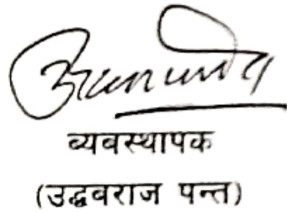 व्यबस्थापक
(उद्धवराज पन्त)